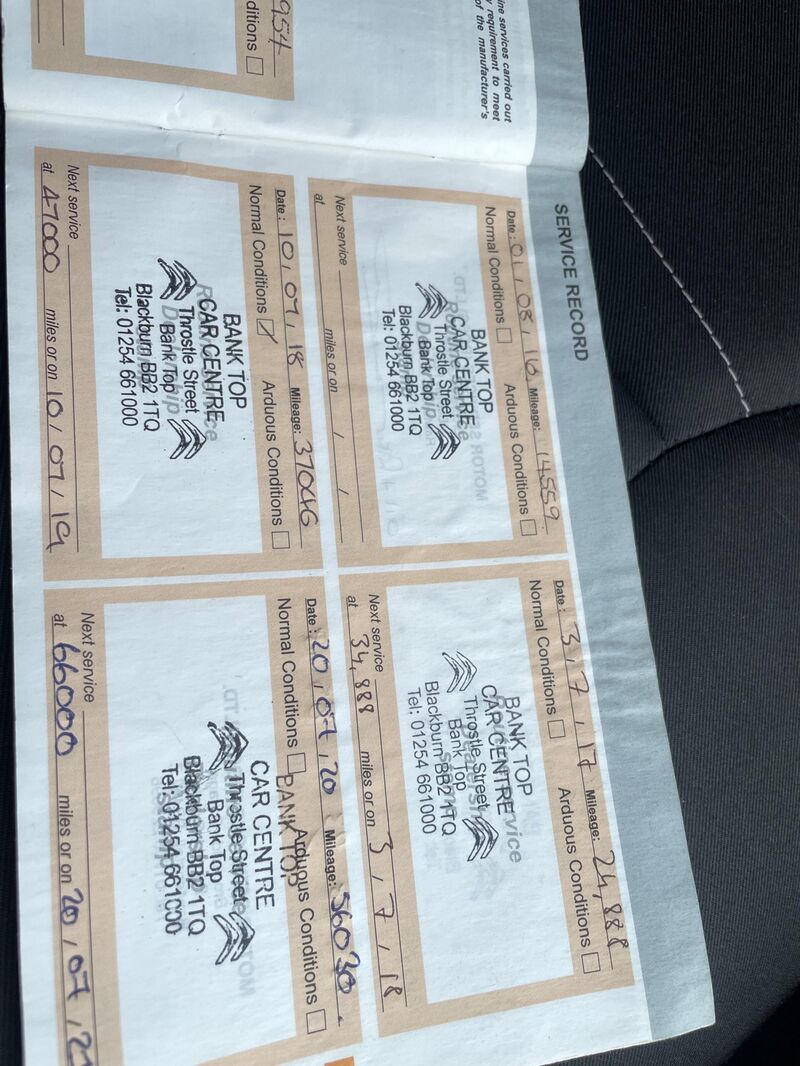 ine services carried out
y requirement to meet
of the manufacturer's
954
ditions
SERVICE RECORD
Date: 01/08/16 Mileage: 14559
Normal Conditions Arduous Conditions
BANK TOP
CAR CENTRE
Throstle Street
Bank Top
Blackburn BB2 1TQ
Tel: 01254 661000
Next service
at miles or on / /
Date: 3/7/17 Mileage: 24,888
Normal Conditions Arduous Conditions
BANK TOP
CAR CENTRE
Throstle Street
Bank Top
Blackburn BB2 1TQ
Tel: 01254 661000
Next service
at 34,888 miles or on 3/7/18
Date: 10/07/18 Mileage: 37046
Normal Conditions Arduous Conditions
BANK TOP
CAR CENTRE
Throstle Street
Bank Top
Blackburn BB2 1TQ
Tel: 01254 661000
Next service
at 47000 miles or on 10/07/19
Date: 20/07/20 Mileage: 56030
Normal Conditions Arduous Conditions
BANK TOP
CAR CENTRE
Throstle Street
Bank Top
Blackburn BB2 1TQ
Tel: 01254 661000
Next service
at 66000 miles or on 20/07/21